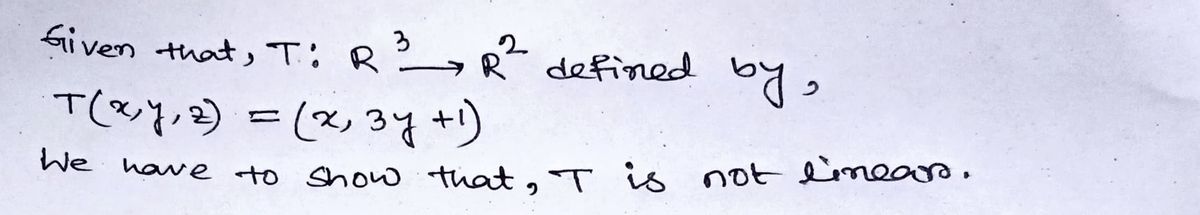 Given that, T: R³ → R² defined by,
T(x,y,z) = (x, 3y +1)
We have to show that, T is not linear.